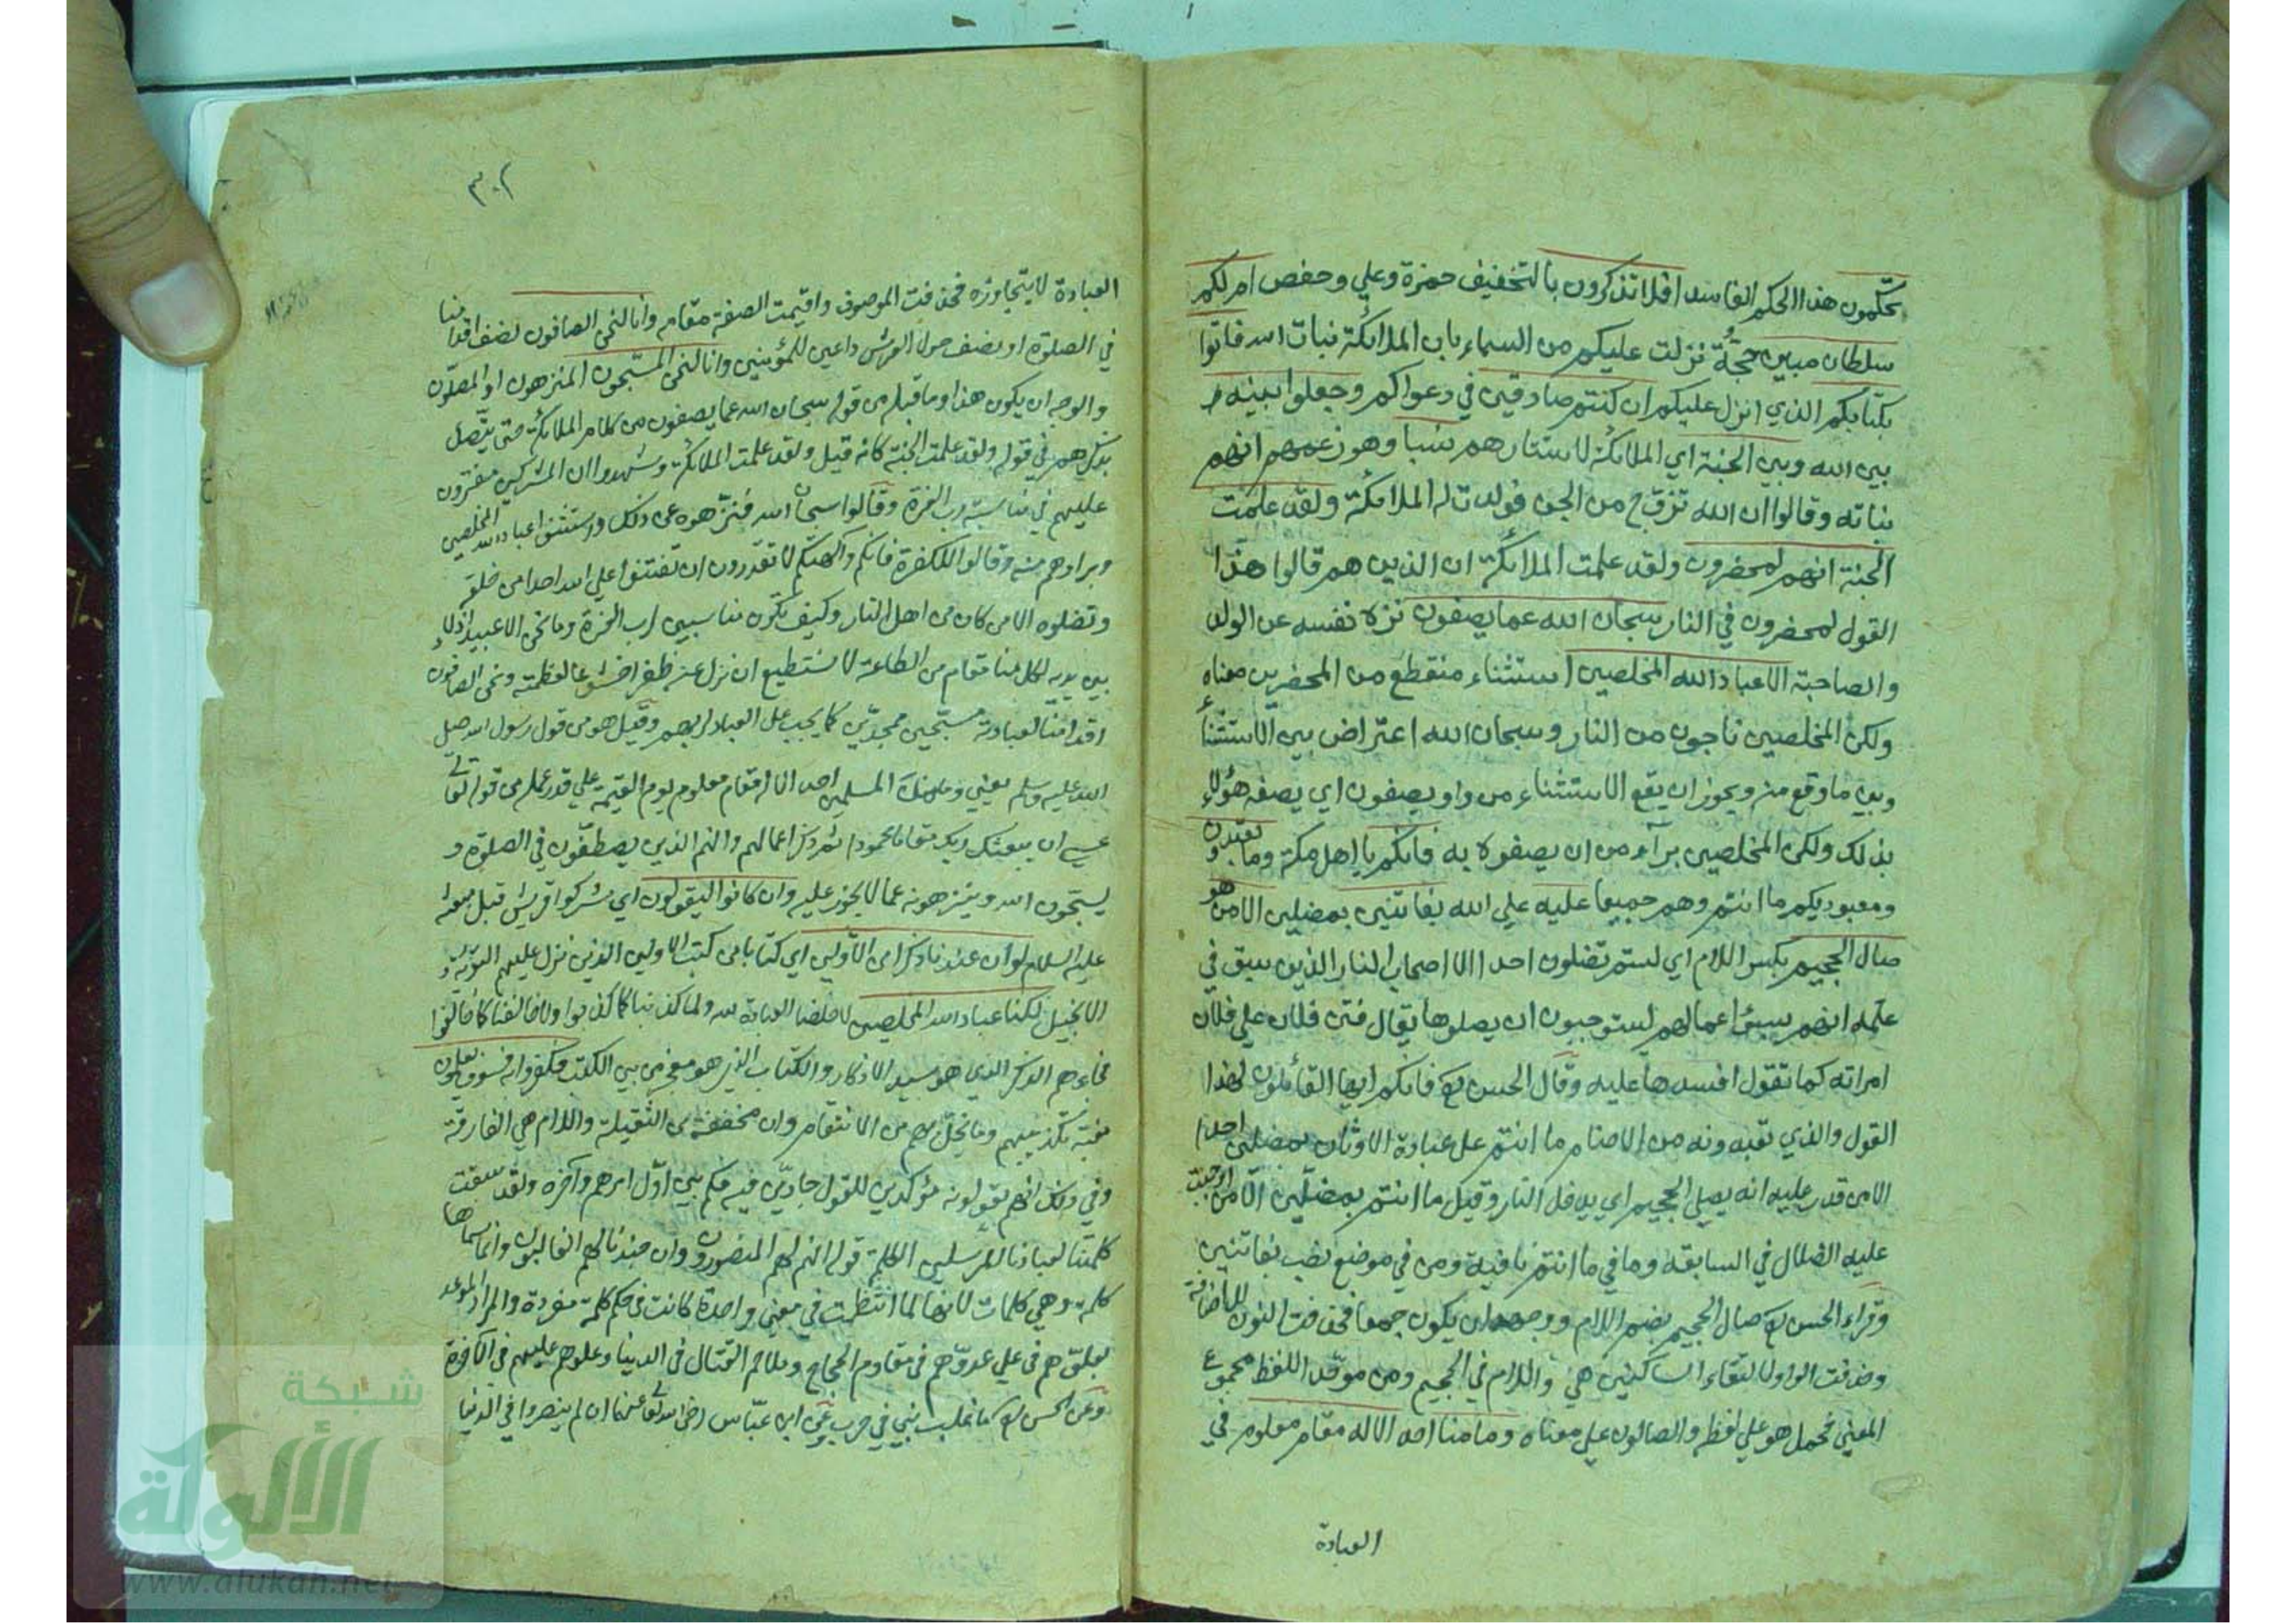 تحكمون هذا الحكم الفاسد افلا تذكرون بالتخفيف حمزة وعلي وحفص ام لكم
سلطان مبين حجة نزلت عليكم من السماء بان الملائكة بنات الله فاتوا
بكتابكم الذي انزل عليكم ان كنتم صادقين في دعواكم وجعلوا بينه
بين الله وبين الجنة اي الملائكة لاستتارهم نسبا وهو زعمهم انهم
بناته وقالوا ان الله تزوج من الجن فولدت له الملائكة ولقد علمت
الجنة انهم لمحضرون ولقد علمت الملائكة ان الذين هم قالوا هذا
القول لمحضرون في النار سبحان الله عما يصفون نزه نفسه عن الولد
والصاحبة الا عباد الله المخلصين استثناء منقطع من المحضرين معناه
ولكن المخلصين ناجون من النار وسبحان الله اعتراض بين الاستثناء
وبين ما وقع منه ويجوز ان يقع الاستثناء من واو يصفون اي يصفه هؤلاء
بذلك ولكن المخلصين برآء من ان يصفوه به فانكم يا اهل مكة وما تعبدون
ومعبوديكم ما انتم وهم جميعا عليه علي الله بفاتنين بمضلين الا من هو
صال الجحيم بكسر اللام اي لستم تضلون احدا الا اصحاب النار الذين سبق في
علمه انهم بسوء اعمالهم يستوجبون ان يصلوها يقال فتن فلان علي فلان
امراته كما تقول افسدها عليه وقال الحسن رح فانكم ايها القائلون لهذا
القول والذي تعبدونه من الاصنام ما انتم على عبادة الاوثان بمضلين احدا
الا من قدر عليه انه يصلي الجحيم اي يدخل النار وقيل ما انتم بمضلين الا من اوجبت
عليه الضلال في السابقه وما في ما انتم نافية ومن في موضع نصب بفاتنين
وقراء الحسن رح صال الجحيم بضم اللام ووجهه ان يكون جمعا فحذفت النون للاضافة
وحذفت الواو لالتقاء الساكنين هي واللام في الجحيم ومن موحد اللفظ مجموع
المعني فحمل هو علي لفظه والصالون علي معناه وما منا احد الا له مقام معلوم في
العبادة
٣٠٢
العبادة لا يتجاوزه فحذفت الموصوف واقيمت الصفة مقامه وانا لنحن الصافون نصف اقدامنا
في الصلوة او نصف حول العرش داعين للمؤمنين وانا لنحن المسبحون المنزهون او المصلون
والوجه ان يكون هذا وما قبله من قوله سبحان الله عما يصفون من كلام الملائكة حتى يتصل
بذكرهم في قوله ولقد علمت الجنة كانه قيل ولقد علمت الملائكة وشهدوا ان المشركين مفترون
عليهم في مناسبة رب العزة وقالوا سبحان الله فنزهوه عن ذلك واستثنوا عباد الله المخلصين
وبراوهم منه وقالوا للكفرة فانكم وآلهتكم لا تقدرون ان تفتنوا علي الله احدا من خلقه
وتضلوه الا من كان من اهل النار وكيف نكون مناسبين لرب العزة وما نحن الا عبيد اذلاء
بين يديه لكل منا مقام من الطاعة لا نستطيع ان نزل عنه ظفرا خشوعا لعظمته ونحن الصافون
اقدامنا لعبادته مسبحين ممجدين كما يجب على العباد لربهم وقيل هو من قول رسول الله صلي
الله عليه وسلم يعني وما من المسلمين احد الا له مقام معلوم يوم القيمة علي قدر عمله من قوله تعالى
عسي ان يبعثك ربك مقاما محمودا ثم ذكر اعمالهم وانهم الذين يصطفون في الصلوة و
يسبحون الله وينزهونه عما لا يجوز عليه وان كانوا ليقولون اي مشركوا قريش قبل مبعثه
عليه السلام لو ان عندنا ذكرا من الاولين اي كتابا من كتب الاولين الذين نزل عليهم التورية و
الانجيل لكنا عباد الله المخلصين لاخلصنا العبادة لله ولما كذبنا كما كذبوا ولا خالفنا كما خالفوا
فجاءهم الذكر الذي هو سيد الاذكار والكتاب الذي هو معجز من بين الكتب فكفروا به فسوف يعلمون
مغبة تكذيبهم وما يحل بهم من الانتقام وان مخففة من الثقيلة واللام هي الفارقة
وفي ذلك انهم يقولونه مؤكدين للقول جادين فيه فكم بين اول امرهم وآخره ولقد سبقت
كلمتنا لعبادنا المرسلين الكلمة قوله انهم لهم المنصورون وان جندنا لهم الغالبون وانما سماها
كلمة وهي كلمات لانها لما انتظمت في معنى واحد كانت في حكم كلمة مفردة والمراد الموعد
بعلوهم علي عدوهم في مقاوم الحجاج وملاحم القتال في الدنيا وعلوهم عليهم في الآخرة
وعن الحسن رح ما غلب نبي في حرب وعن ابن عباس رضي الله تعالى عنهما ان لم ينصروا في الدنيا
شبكة
الألوكة
www.alukah.net